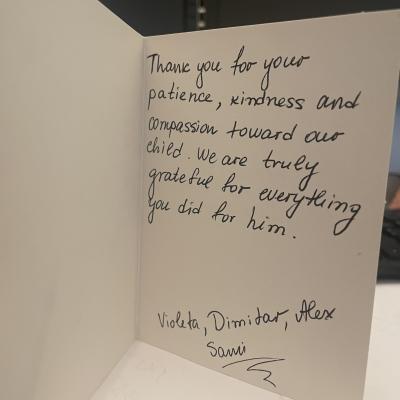 Thank you for your
patience, kindness and
compassion toward our
child. We are truly
grateful for everything
you did for him.
Violeta, Dimitar, Alex
Sami